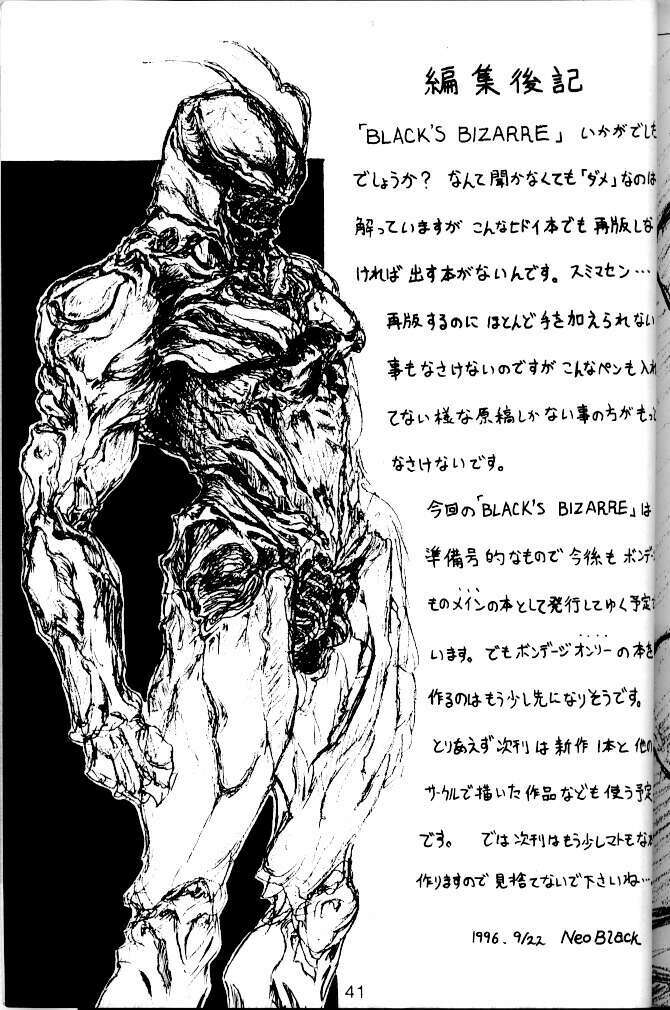 編集後記
「BLACK'S BIZARRE」いかがでしも
でしょうか？ なんて聞かなくても「ダメ」なのは
解っていますが こんなヒドイ本でも 再版しな
ければ 出す本がないんです。スミマセン…
再版するのに ほとんど手を加えられない
事もなさけないのですが こんなペンも入れ
てない様な原稿しかない事の方がもっ
なさけないです。
今回の「BLACK'S BIZARRE」は
準備号的なもので 今後も ボンデー
ものメインの本として発行してゆく予定で
います。でもボンデージオンリーの本を
作るのはもう少し先になりそうです。
とりあえず次刊は新作1本と他の
サークルで描いた作品なども使う予定
です。 では次刊はもう少しマトモな
作りますので 見捨てないで下さいね…
1996. 9/22 Neo Black
41